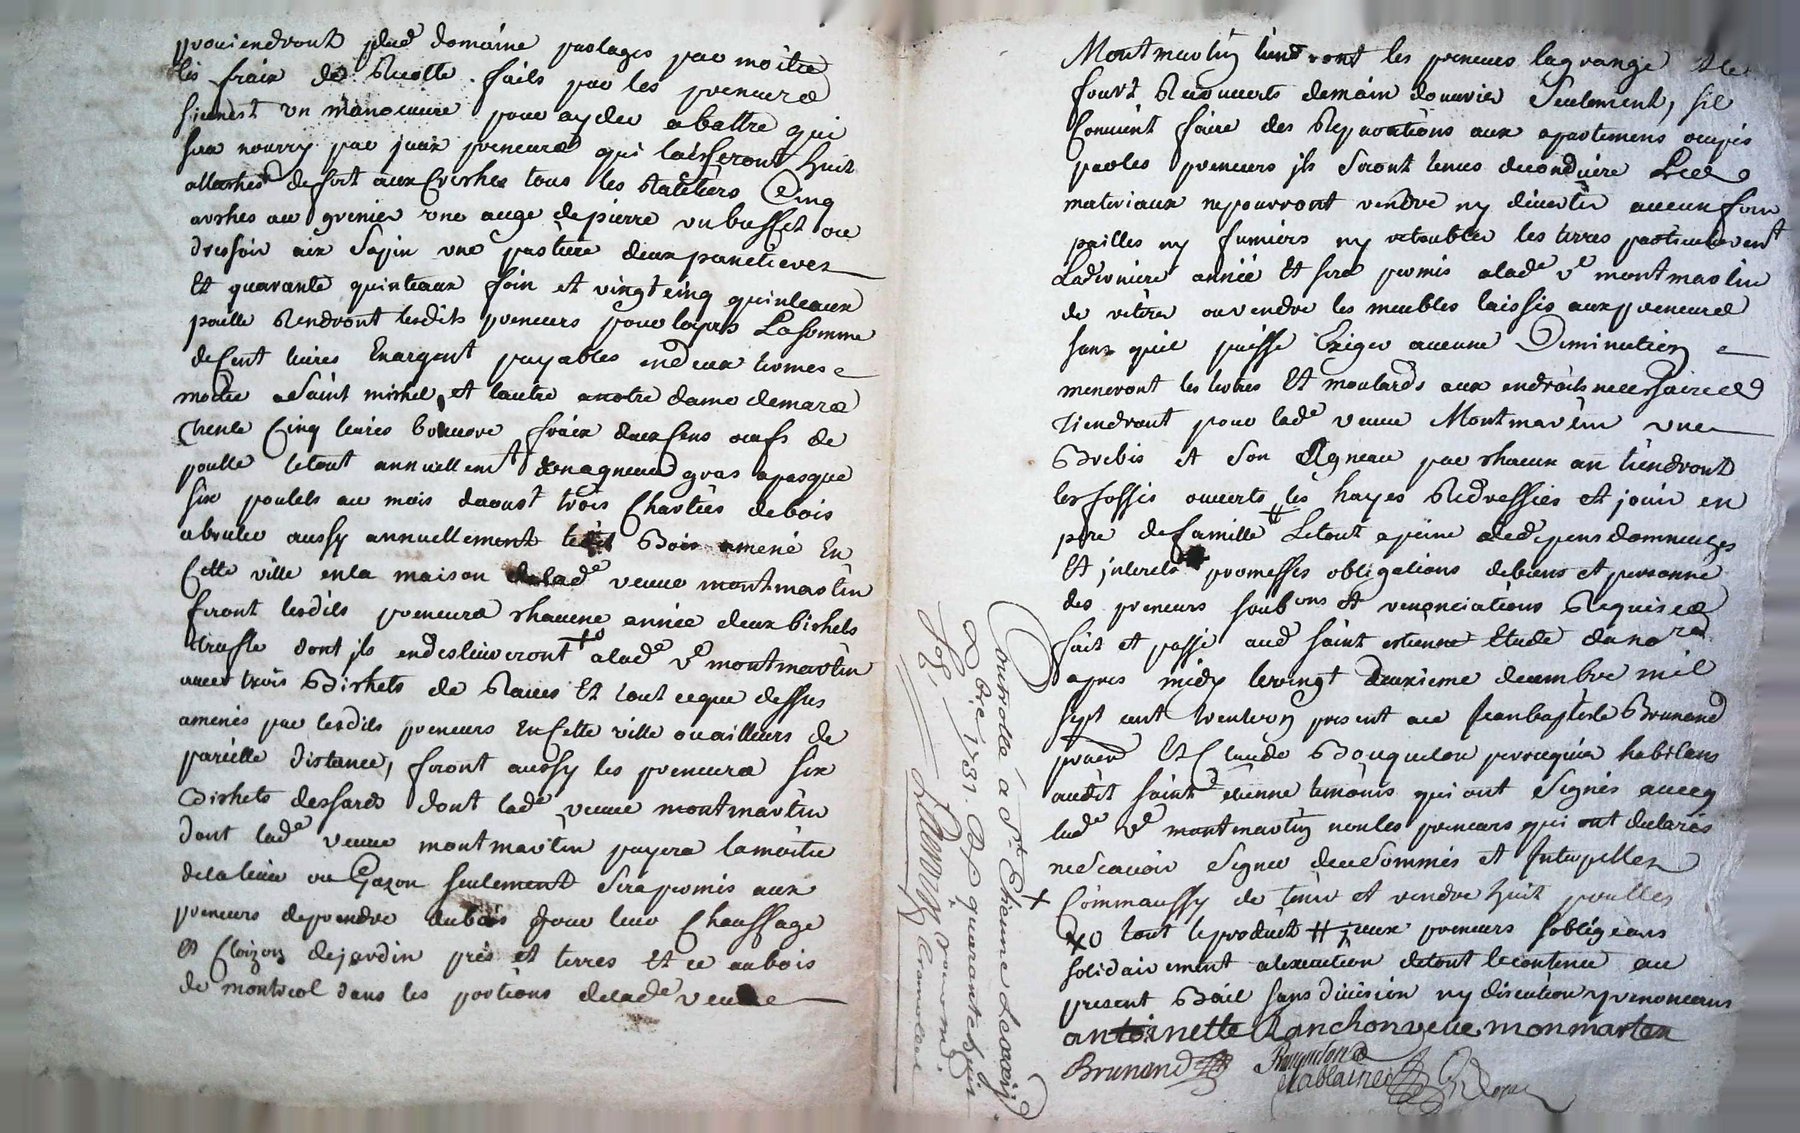 proviendront dud domaine partagés par moitié
les fraix de Recolte faits par les preneurs
si cen'est un manoeuvre pour ayder a battre qui
sera nourry par iceux preneurs qui laisseront huit
attaches de fert aux Creches tous les Rateliers Cinq
arches au grenier une auge de pierre un buffet ou
dressoir aix Sapin une pastiere deux panetieres
Et quarante quinteaux foin et vingt cinq quinteaux
paille Rendront lesdits preneurs pour layds La somme
de Cent livres En argent payables en deux termes
moitié a Saint michel, et lautre a notre dame de mars
trente Cinq livres beurre fraix deux Cens oeufs de
poulle le tout annuellemt deux agneaux gras a pasque
six poulets au mois daoust trois Chartées de bois
a bruler aussy annuellement ledit Bois amené En
Cette ville en la maison de lade veuve montmartin
feront lesdits preneurs chacune année deux bichets
trufle dont ils en deslivreront +o a lade ve montmartin
avec trois Bichets de Raves Et tout ceque dessus
amenés par lesdits preneurs En Cette ville ou ailleurs de
pareille distance, feront aussy les preneurs six
Bichets dessards dont lade veuve montmartin
dont lade veuve montmartin payera la moitié
de la leuée ou Gazon seulement Sera promis aux
preneurs de prendre du bois pour leur Chauffage
et Cloizon de jardin prés et terres Et ce au bois
de montreol dans les portions de lade veuve
Controllé à St. Etienne Le
Xbre 1731. R/s quarante huit
sols,
Montmartin tiendront les preneurs la grange et le
fourt Recouverts de main d'ouvrier Seulement, sil
Convient faire des Reparations aux apartemens ocupés
par les preneurs ils seront tenus de conduire Les
materiaux ne pourront vendre ny divertir aucun foin
pailles ny fumiers ny retoubler les terres particulierement
La derniere année Et sera permis a lade ve montmartin
de retirer ou vendre les meubles laissés aux preneurs
sans quil puisse Exiger aucune Diminution
meneront les livres Et moutards aux endroits necessaires
Tiendront pour lade veuve Montmartin une
Brebis et Son Agneau par chacun an tiendront
les fossés ouverts les hayes Redressées et jouir en
pere de famille # Le tout a peine de depens dommages
Et interets promesses obligations de biens et personne
des preneurs soubons et renonciations Requises
fait et passé aud saint etienne Etude du nore
apres midy le vingt deuxieme decembre mil
sept cent trente un present a ce Jean baptiste Brunand
praen Et Claude Bouquelon perruquier habitans
audit saint etienne temoins qui ont signés avecq
lade ve montmartin non les preneurs qui ont declarés
ne scavoir Signer de ce Sommés et Interpellez
x Comm'aussy de tenir et rendre huit poulles
xo tout le produit # iceux preneurs s'obligeans
solidairement a lexecution de tout le contenu au
present Bail sans division ny discution y renonceans
antoinette Ranchon veuve monmarten
Brunand